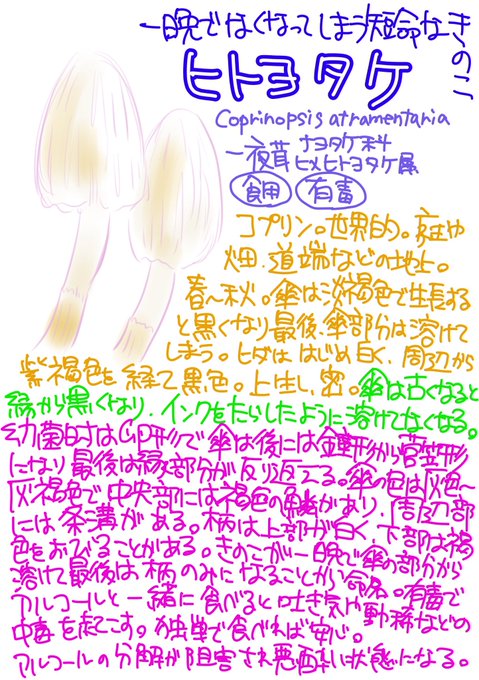 一晩でなくなってしまう短命なきのこ
ヒトヨタケ
Coprinopsis atramentaria
一夜茸 ナヨタケ科
ヒメヒトヨタケ属
食用 有毒
コプリン。世界的。庭や
畑、道端などの地上。
春～秋。傘は淡褐色で生長する
と黒くなり最後、傘部分は溶けて
しまう。ヒダははじめ白く、周辺から
紫褐色を経て黒色。上生し、密。傘は古くなると
縁から黒くなり、インクをたらしたように溶けてなくなる。
幼菌時は卵形で傘は後には鐘形から菅笠形
になり最後は縁部分が反り返える。傘の色は灰色～
灰褐色で中央部には褐色の鱗があり、周辺部
には条溝がある。柄は上部が白く、下部は褐
色をおびることがある。きのこが一晩で傘の部分から
溶けて最後は柄のみになることから命名。有毒で
アルコールと一緒に食べると吐き気や動悸などの
中毒を起こす。単独で食べれば安心。
アルコールの分解が阻害され悪酔い状態になる。